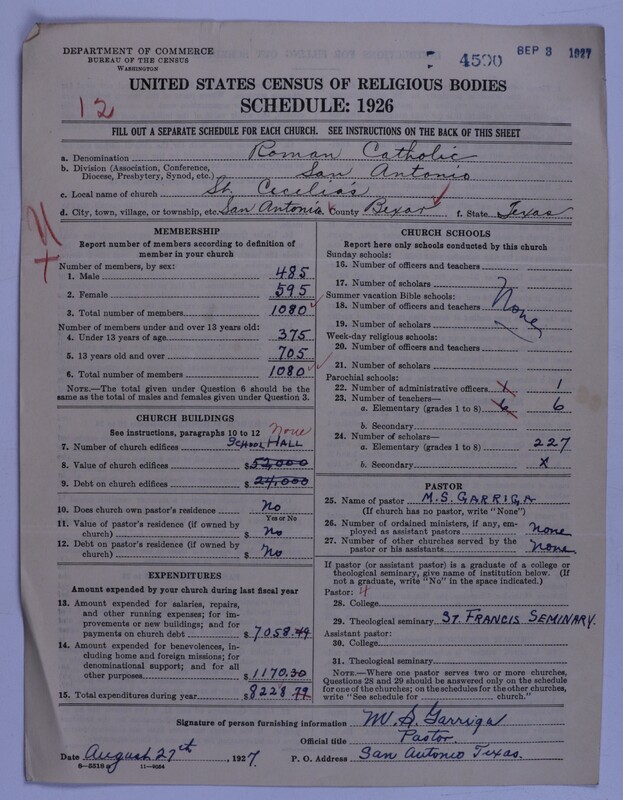 DEPARTMENT OF COMMERCE
BUREAU OF THE CENSUS
WASHINGTON
4500
SEP 3 1927
UNITED STATES CENSUS OF RELIGIOUS BODIES
SCHEDULE: 1926
12
FILL OUT A SEPARATE SCHEDULE FOR EACH CHURCH. SEE INSTRUCTIONS ON THE BACK OF THIS SHEET
a. Denomination Roman Catholic
b. Division (Association, Conference, Diocese, Presbytery, Synod, etc.) San Antonio
c. Local name of church St. Cecelia's
d. City, town, village, or township, etc. San Antonio County Bexar f. State Texas
MEMBERSHIP
Report number of members according to definition of
member in your church
Number of members, by sex:
1. Male 485
2. Female 595
3. Total number of members 1080
Number of members under and over 13 years old:
4. Under 13 years of age 375
5. 13 years old and over 705
6. Total number of members 1080
NOTE.—The total given under Question 6 should be
same as the total of males and females given under Question 3.
CHURCH BUILDINGS
See instructions, paragraphs 10 to 12 None
7. Number of church edifices SCHOOL HALL
8. Value of church edifices $52,000
9. Debt on church edifices $24,000
10. Does church own pastor's residence? No
Yes or No
11. Value of pastor's residence (if owned by
church) $ No
12. Debt on pastor's residence (if owned by
church) $ No
EXPENDITURES
Amount expended by your church during last fiscal year
13. Amount expended for salaries, repairs,
and other running expenses; for im-
provements or new buildings; and for
payments on church debt $7058.49
14. Amount expended for benevolences, in-
cluding home and foreign missions; for
denominational support; and for all
other purposes $1170.30
15. Total expenditures during year $8228.79
CHURCH SCHOOLS
Report here only schools conducted by this church
Sunday schools:
16. Number of officers and teachers
17. Number of scholars
Summer vacation Bible schools:
18. Number of officers and teachers None
19. Number of scholars
Week-day religious schools:
20. Number of officers and teachers
21. Number of scholars
Parochial schools:
22. Number of administrative officers 1 1
23. Number of teachers—
a. Elementary (grades 1 to 8) 6 6
b. Secondary
24. Number of scholars—
a. Elementary (grades 1 to 8) 227
b. Secondary x
PASTOR
25. Name of pastor M.S. GARRIGA
(If church has no pastor, write "None")
26. Number of ordained ministers, if any, em-
ployed as assistant pastors none
27. Number of other churches served by the
pastor or his assistants none
If pastor (or assistant pastor) is a graduate of a college or
theological seminary, give name of institution below. (If
not a graduate, write "No" in the space indicated.)
Pastor: 4
28. College
29. Theological seminary ST. FRANCIS SEMINARY.
Assistant pastor:
30. College
31. Theological seminary
NOTE.—Where one pastor serves two or more churches,
Questions 28 and 29 should be answered only on the schedule
for one of the churches; on the schedules for the other churches,
write "See schedule for church."
Signature of person furnishing information M. S. Garriga
Official title Pastor
Date August 27th, 1927. P. O. Address San Antonio Texas.
8-5518a 11-9064